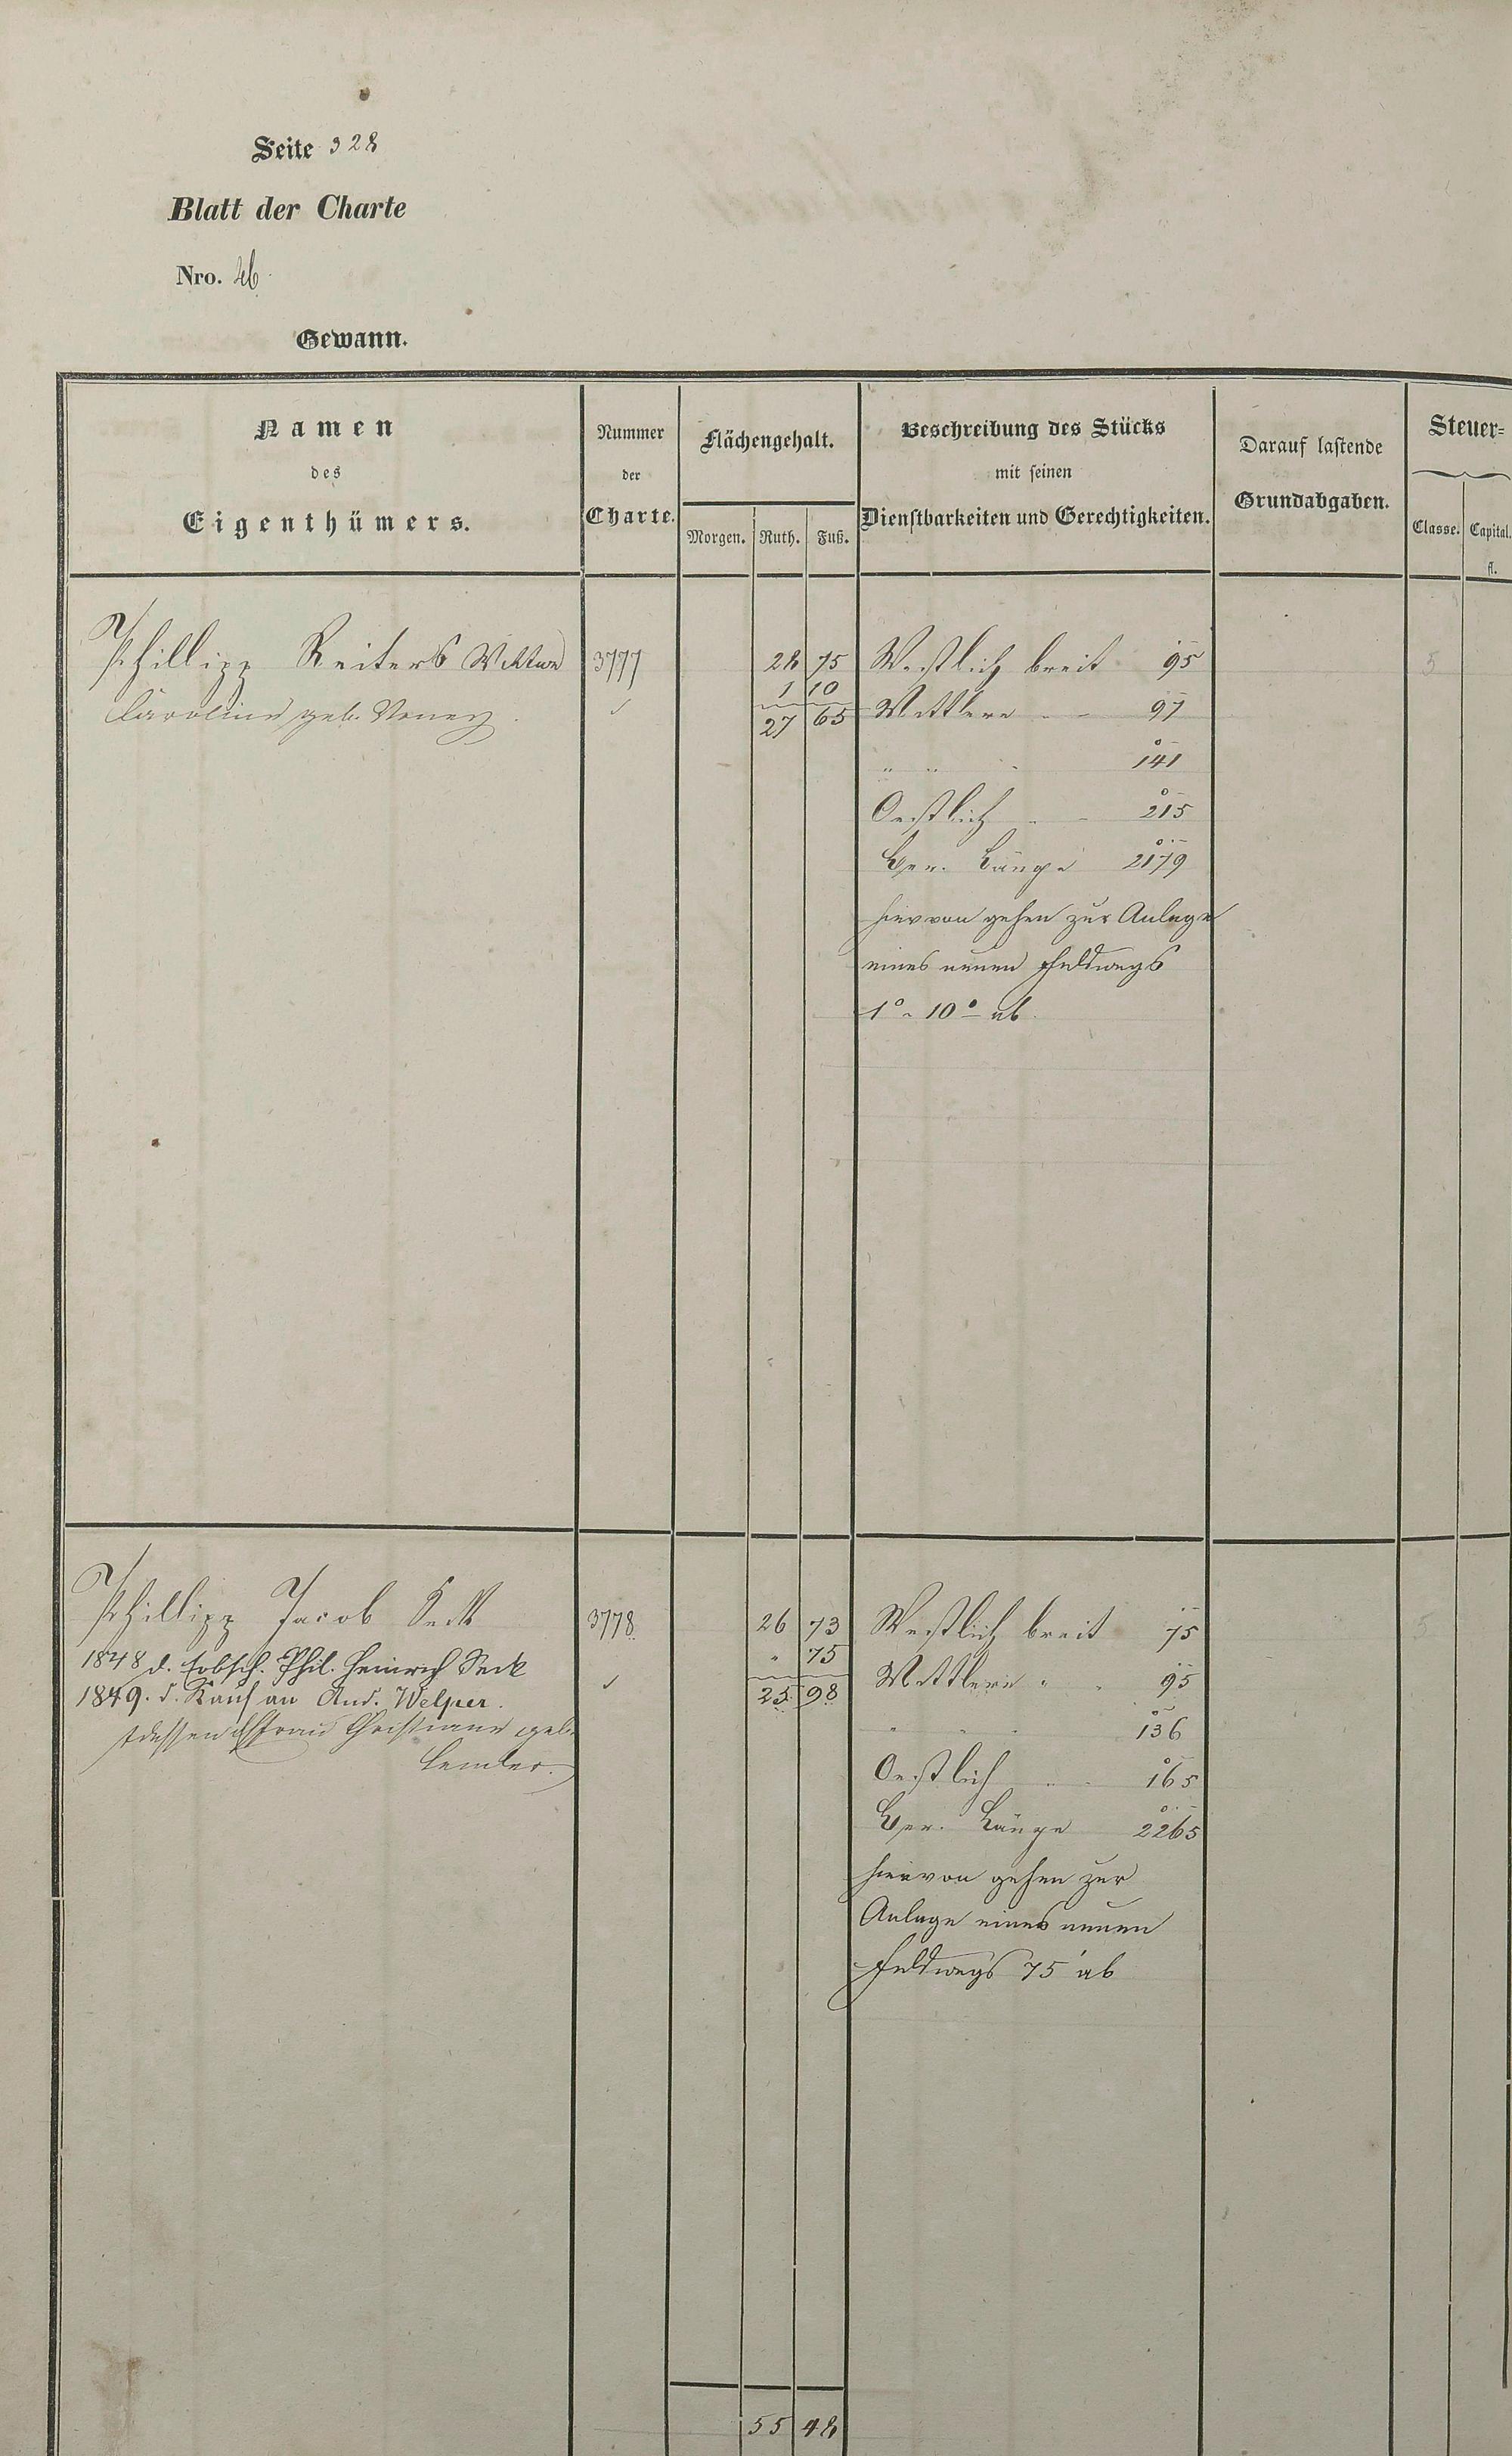 Seite 328
Blatt der Charte
Nro. 46.
Gewann.
Namen
des
Eigenthümers.
Nummer
der
Charte.
Flächengehalt.
Morgen. Ruth. Fuß.
Beschreibung des Stücks
mit seinen
Dienstbarkeiten und Gerechtigkeiten.
Darauf lastende
Grundabgaben.
Steuer=
Classe. Capital.
fl.
Phillipp Reiters Wittwe 3777 28 75 Westlich breit 95 5
1 10
Caroline geb. 27 65 Mittlere 97
" " 141
Oestlich 215
Ger. Länge 2179
hiervon gehen zur Anlage
eines neuen Feldwegs
1° 10° ab.
Phillipp Jacob Seck 3778 26 73 Westlich breit 75 5
1848 d. Erbsch. Phil. Heinrich Seck " 75
1849. d. Kauf an And. Welper. 25 98 Mittlere " " 95
dessen Ehefrau Christiane geb. " " 136
Lemler.
Oestlich " " 165
Ger. Länge 2265
hiervon gehen zur
Anlage eines neuen
Feldwegs 75' ab
55 48